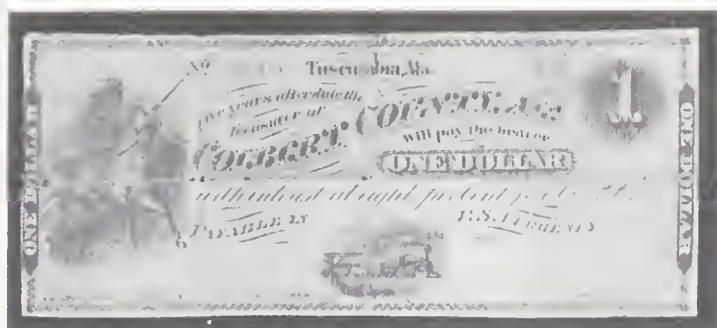 ONE DOLLAR
No
Tuscumbia, Ala.
Five years after date the
Treasurer of
COLBERT COUNTY, ALA.
will pay the bearer
ONE DOLLAR
with interest at eight per cent per
PAYABLE IN U.S. CURRENCY
1
ONE DOLLAR